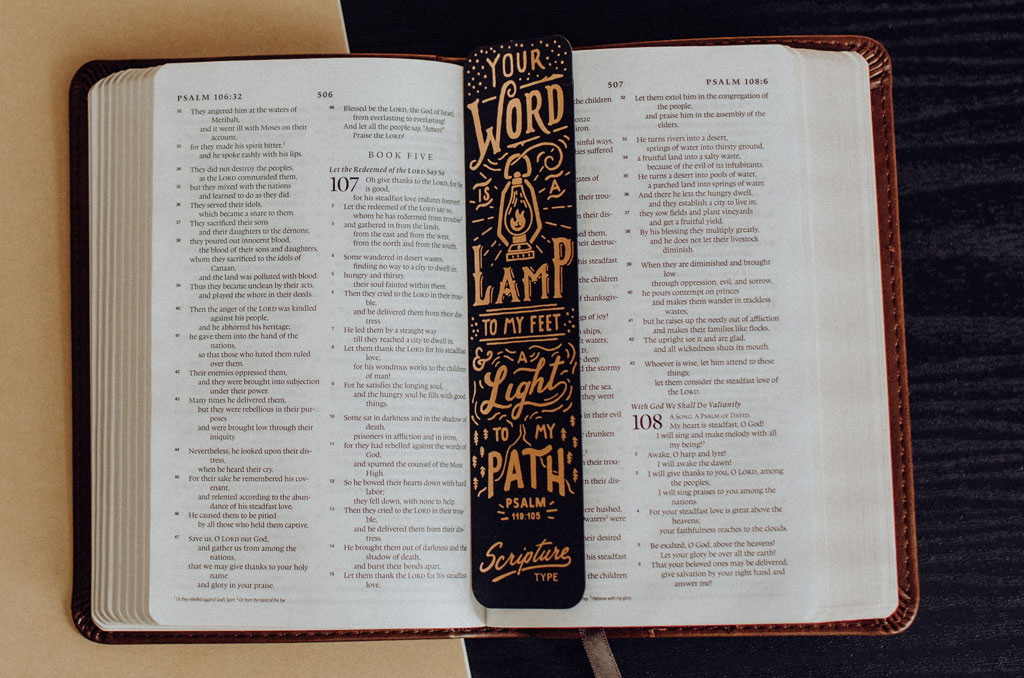 PSALM 106:32
506
32 They angered him at the waters of
Meribah,
and it went ill with Moses on their
account,
33 for they made his spirit bitter,¹
and he spoke rashly with his lips.
34 They did not destroy the peoples,
as the LORD commanded them,
35 but they mixed with the nations
and learned to do as they did.
36 They served their idols,
which became a snare to them.
37 They sacrificed their sons
and their daughters to the demons;
38 they poured out innocent blood,
the blood of their sons and daughters,
whom they sacrificed to the idols of
Canaan,
and the land was polluted with blood.
39 Thus they became unclean by their acts,
and played the whore in their deeds.
40 Then the anger of the LORD was kindled
against his people,
and he abhorred his heritage;
41 he gave them into the hand of the
nations,
so that those who hated them ruled
over them.
42 Their enemies oppressed them,
and they were brought into subjection
under their power.
43 Many times he delivered them,
but they were rebellious in their pur-
poses
and were brought low through their
iniquity.
44 Nevertheless, he looked upon their dis-
tress,
when he heard their cry.
45 For their sake he remembered his cov-
enant,
and relented according to the abun-
dance of his steadfast love.
46 He caused them to be pitied
by all those who held them captive.
47 Save us, O LORD our God,
and gather us from among the
nations,
that we may give thanks to your holy
name
and glory in your praise.
48 Blessed be the LORD, the God of Israel,
from everlasting to everlasting!
And let all the people say, "Amen!"
Praise the LORD!
BOOK FIVE
Let the Redeemed of the LORD Say So
107 Oh give thanks to the LORD, for he
is good,
for his steadfast love endures forever!
2 Let the redeemed of the LORD say so,
whom he has redeemed from trouble
3 and gathered in from the lands,
from the east and from the west,
from the north and from the south.
4 Some wandered in desert wastes,
finding no way to a city to dwell in;
5 hungry and thirsty,
their soul fainted within them.
6 Then they cried to the LORD in their trou-
ble,
and he delivered them from their dis-
tress.
7 He led them by a straight way
till they reached a city to dwell in.
8 Let them thank the LORD for his steadfast
love,
for his wondrous works to the children
of man!
9 For he satisfies the longing soul,
and the hungry soul he fills with good
things.
10 Some sat in darkness and in the shadow of
death,
prisoners in affliction and in irons,
11 for they had rebelled against the words of
God,
and spurned the counsel of the Most
High.
12 So he bowed their hearts down with hard
labor;
they fell down, with none to help.
13 Then they cried to the LORD in their trou-
ble,
and he delivered them from their dis-
tress.
14 He brought them out of darkness and the
shadow of death,
and burst their bonds apart.
15 Let them thank the LORD for his steadfast
love,
¹ Or they rebelled against God's Spirit ² Or from the hand of the foe
YOUR
WORD
IS A
LAMP
TO MY FEET
& A
Light
TO MY
PATH
PSALM
118:105
Scripture
TYPE
507
PSALM 108:6
the children
iron.
sinful ways,
ies suffered
ates of
their trou-
their dis-
ed them,
their destruc-
his steadfast
the children
of thanksgiv-
gs of joy!
ships,
waters;
deep:
the stormy
of the sea.
they went
in their evil
drunken
their trou-
their dis-
were hushed.
waters² were
their desired
his steadfast
the children
32 Let them extol him in the congregation of
the people,
and praise him in the assembly of the
elders.
33 He turns rivers into a desert,
springs of water into thirsty ground,
34 a fruitful land into a salty waste,
because of the evil of its inhabitants.
35 He turns a desert into pools of water,
a parched land into springs of water.
36 And there he lets the hungry dwell,
and they establish a city to live in;
37 they sow fields and plant vineyards
and get a fruitful yield.
38 By his blessing they multiply greatly,
and he does not let their livestock
diminish.
39 When they are diminished and brought
low
through oppression, evil, and sorrow,
40 he pours contempt on princes
and makes them wander in trackless
wastes;
41 but he raises up the needy out of affliction
and makes their families like flocks.
42 The upright see it and are glad,
and all wickedness shuts its mouth.
43 Whoever is wise, let him attend to these
things;
let them consider the steadfast love of
the LORD.
With God We Shall Do Valiantly
108 A SONG. A PSALM OF DAVID.
My heart is steadfast, O God!
I will sing and make melody with all
my being!¹
2 Awake, O harp and lyre!
I will awake the dawn!
3 I will give thanks to you, O LORD, among
the peoples;
I will sing praises to you among the
nations.
4 For your steadfast love is great above the
heavens;
your faithfulness reaches to the clouds.
5 Be exalted, O God, above the heavens!
Let your glory be over all the earth!
6 That your beloved ones may be delivered,
give salvation by your right hand and
answer me!
¹ Hebrew with my glory